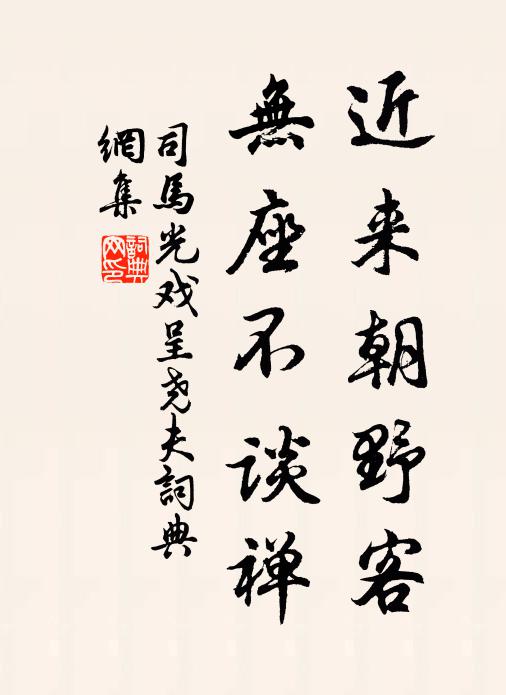 近来朝野客
無座不谈禅
司馬光戏呈尧夫詞典
網集
詞典
网印